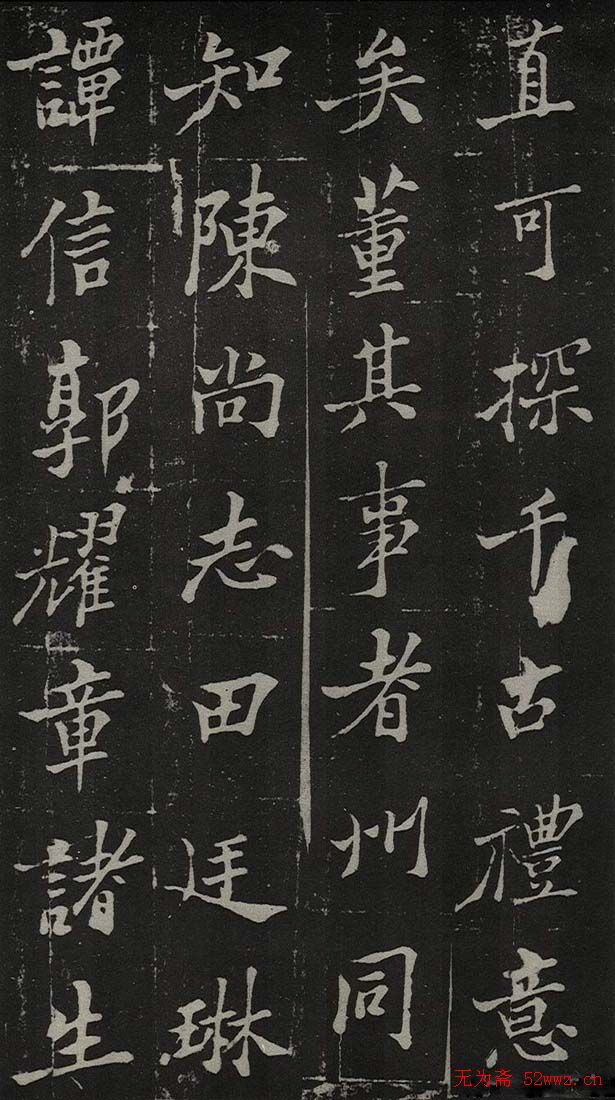 直可探千古禮意
矣董其事者州同
知陳尚志田廷琳
譚信郭耀章諸生
无为斋 52wwz.cn